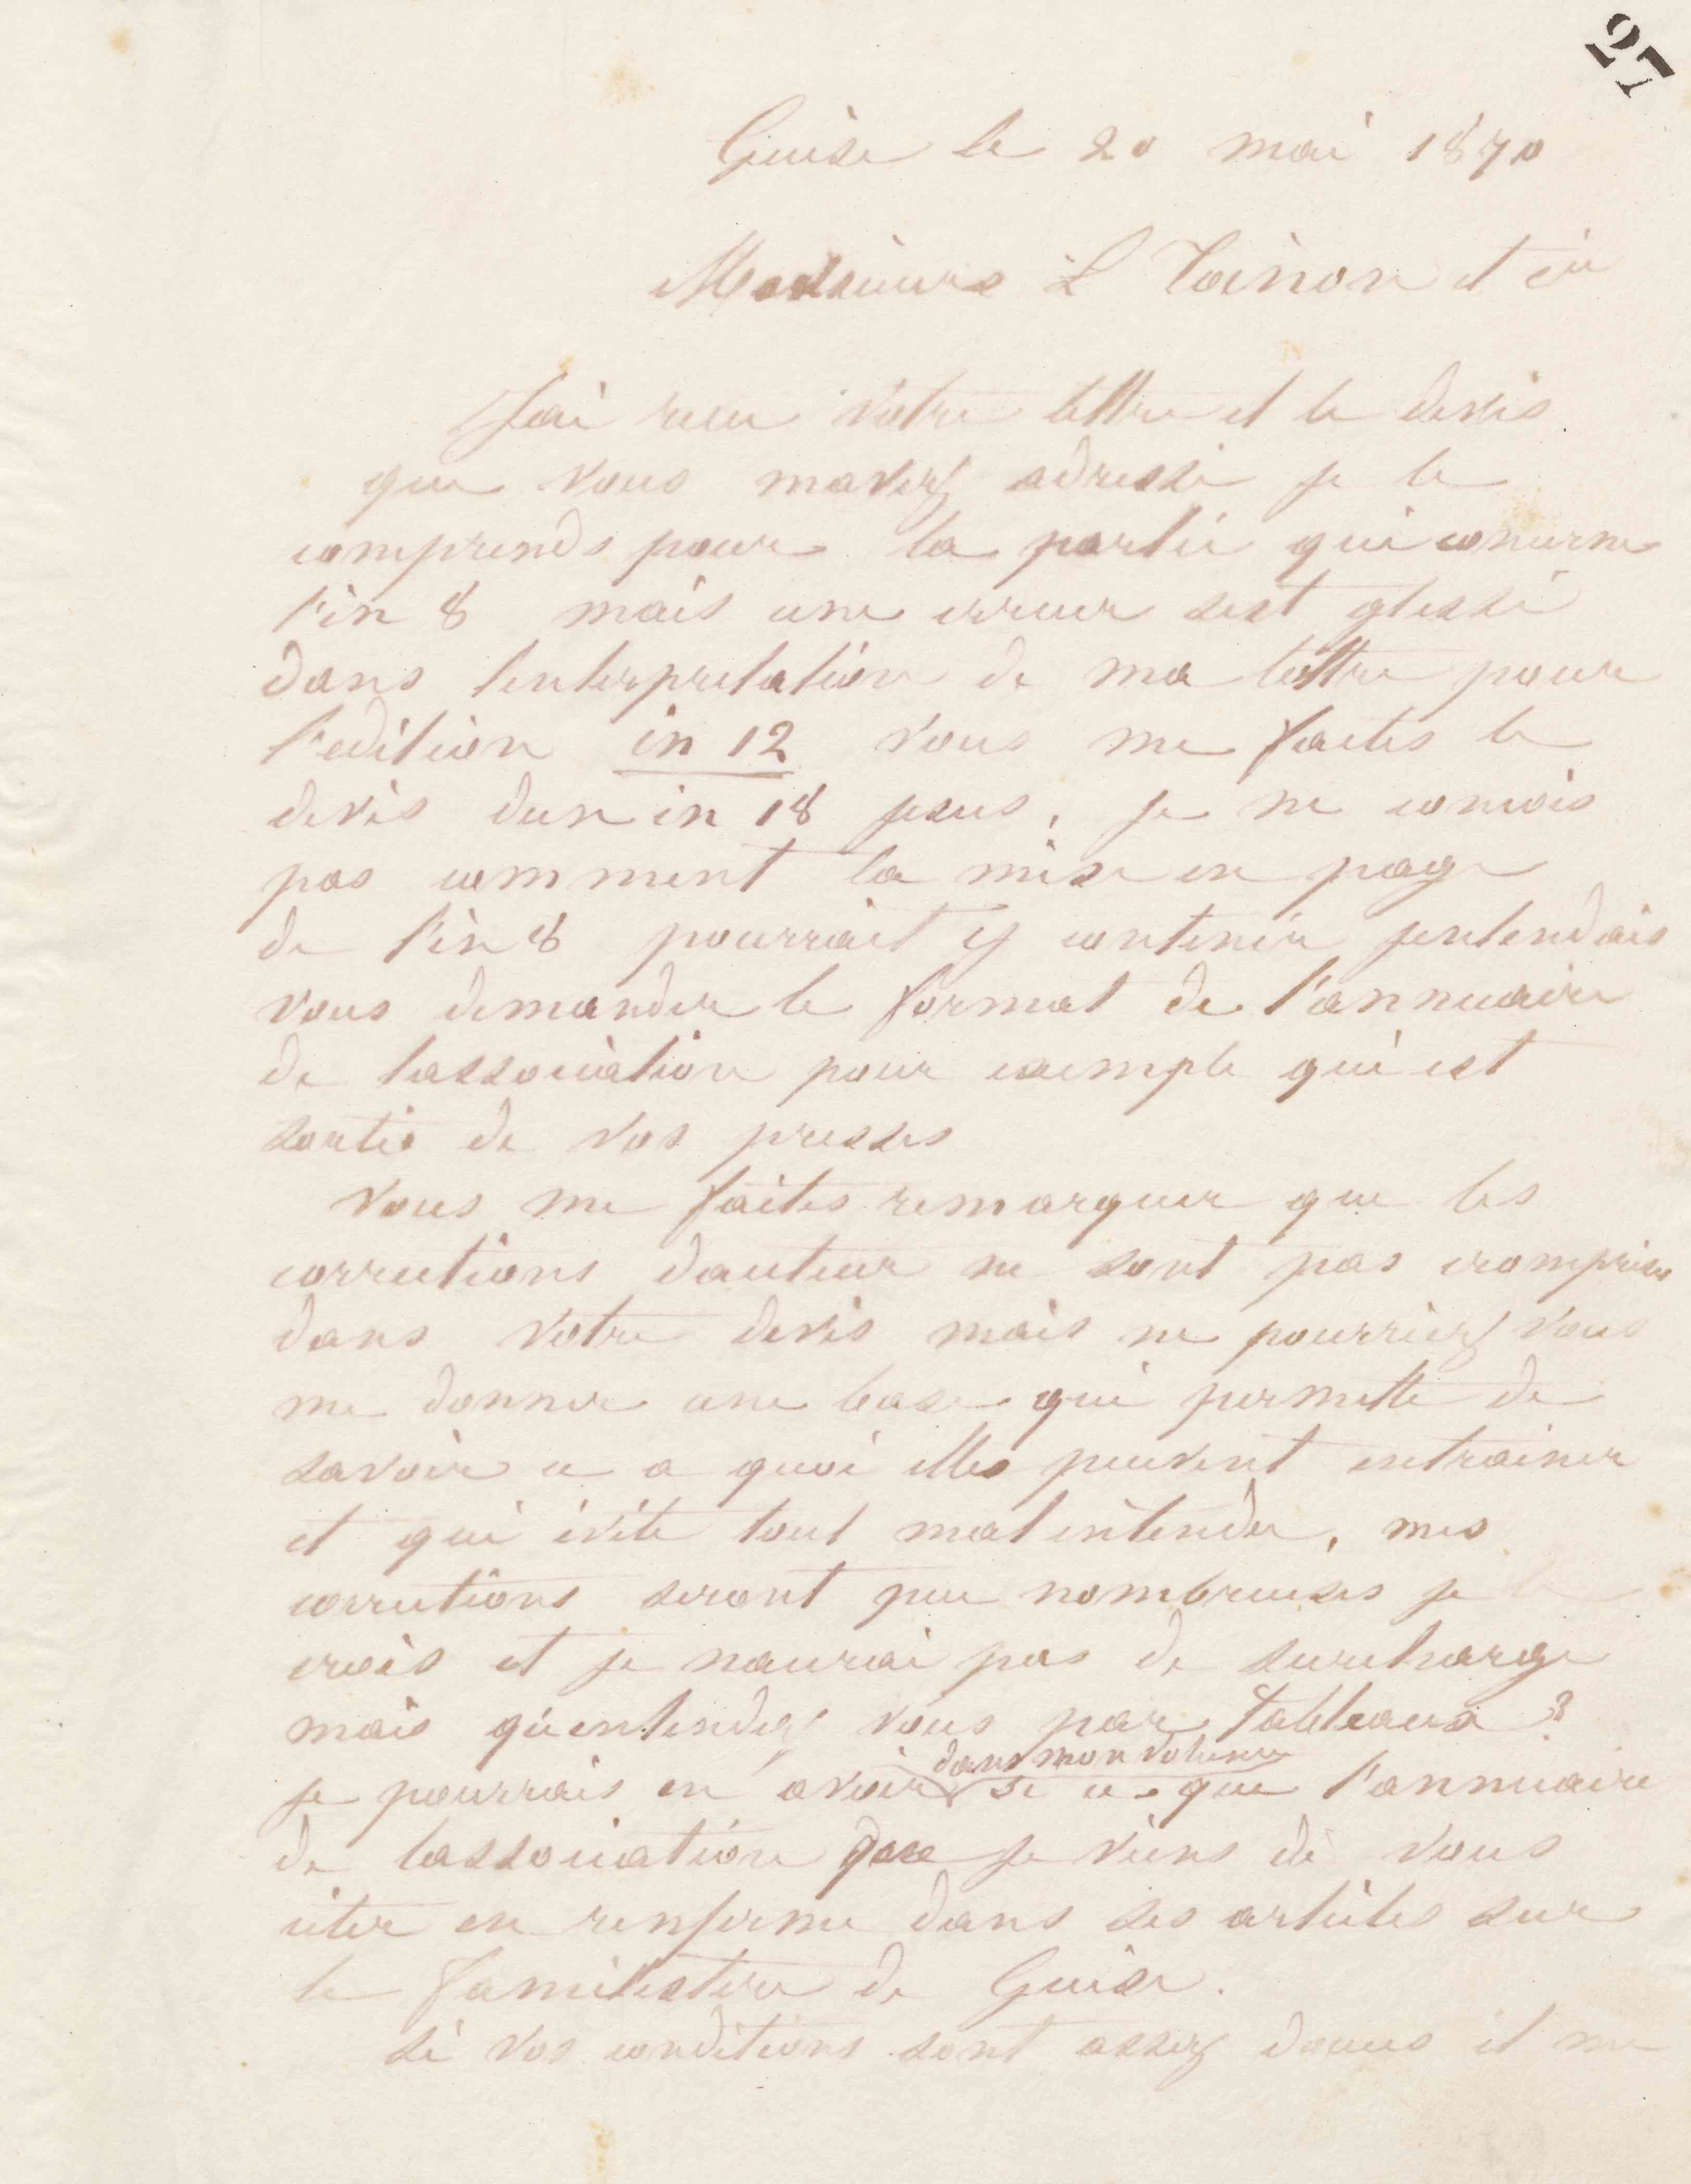 27
Guise le 20 mai 1870
Messieurs L Toinon et cie
Jai recu votre lettre et le devis
que vous mavez adressé je le
comprends pour la partie qui concerne
l'in 8 mais une erreur sest glissé
dans linterpretation de ma lettre pour
l'edition in 12 vous me faites le
devis dun in 18 jesus, je ne concois
pas comment la mise en page
de l'in 8 pourrait y contenir jentendais
vous demander le format de l'annuaire
de lassociation pour exemple qui est
sortie de vos presses
Vous me faites remarquer que les
corrections dauteur ne sont pas comprises
dans votre devis mais ne pourriez vous
me donner une base qui permette de
savoir ce a quoi elles peuvent entrainer
et qui évite tout malentendu, mes
corrections seront peu nombreuses je le
crois et je naurai pas de surcharge
mais qu'entendez vous par tableaux?
dans mon volume
je pourrais en avoir si ce que l'annuaire
de lassociation que je viens de vous
citer en renferme dans ses articles sur
le familistere de Guise.
si vos conditions sont assez douces il me